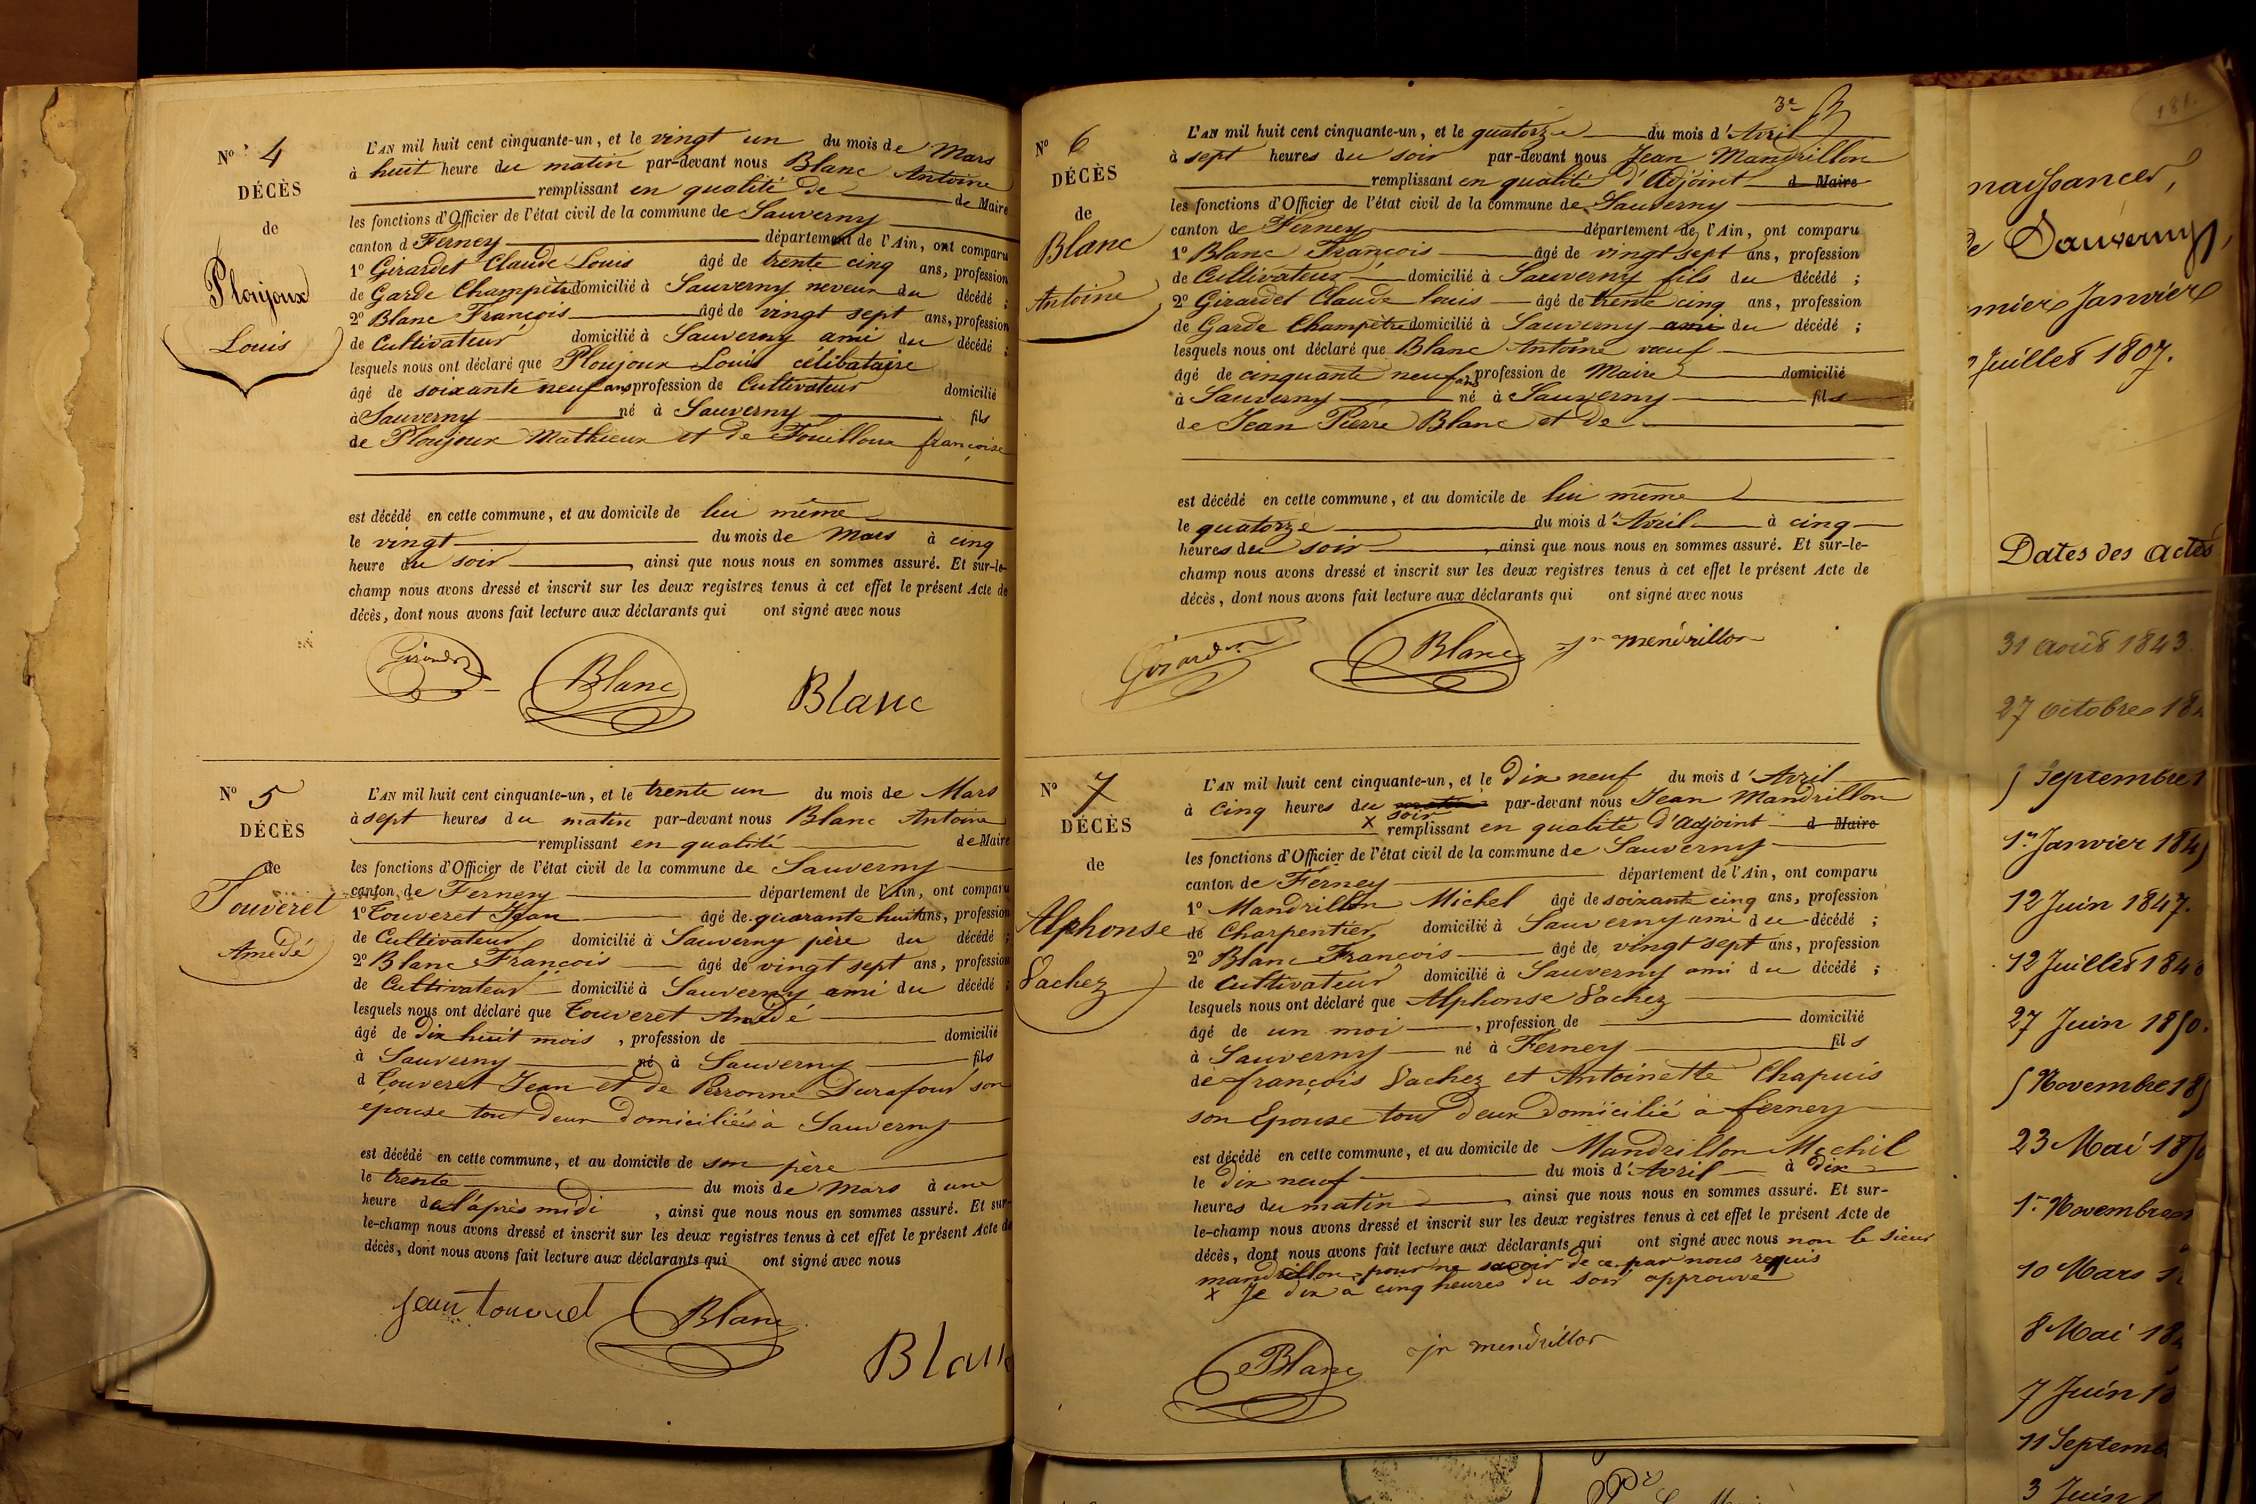 N° 4
DÉCÈS
de
Ploujoux
Louis
L'AN mil huit cent cinquante-un, et le vingt un du mois de Mars
à huit heure du matin par-devant nous Blanc Antoine
remplissant en qualité de de Maire
les fonctions d'Officier de l'état civil de la commune de Sauverny
canton d Ferney département de l'Ain, ont comparu
1° Girardet Claude Louis âgé de trente cinq ans, profession
de Garde Champêtre domicilié à Sauverny neveux du décédé ;
2° Blanc François âgé de vingt sept ans, profession
de Cultivateur domicilié à Sauverny ami du décédé ;
lesquels nous ont déclaré que Ploujoux Louis célibataire
âgé de soixante neuf ans profession de Cultivateur domicilié
à Sauverny né à Sauverny fils
de Ploujoux Mathieux et de Fouilloux françoise
est décédé en cette commune, et au domicile de lui même
le vingt du mois de Mars à cinq
heure du soir , ainsi que nous nous en sommes assuré. Et sur-le-
champ nous avons dressé et inscrit sur les deux registres tenus à cet effet le présent Acte de
décès, dont nous avons fait lecture aux déclarants qui ont signé avec nous
Blanc
Blanc
N° 5
DÉCÈS
de
Touveret
Amédé
L'AN mil huit cent cinquante-un, et le trente un du mois de Mars
à sept heures du matin par-devant nous Blanc Antoine
remplissant en qualité de Maire
les fonctions d'Officier de l'état civil de la commune de Sauverny
canton de Ferney département de l'Ain, ont comparu
1° Touveret Jean âgé de quarante huit ans, profession
de Cultivateur domicilié à Sauverny père du décédé ;
2° Blanc François âgé de vingt sept ans, profession
de Cultivateur domicilié à Sauverny ami du décédé ;
lesquels nous ont déclaré que Touveret Amédé
âgé de dix huit mois , profession de domicilié
à Sauverny né à Sauverny fils
d Touveret Jean et de Perronne Durafour son
épouse tout deux domiciliés à Sauverny
est décédé en cette commune, et au domicile de son père
le trente du mois de Mars à une
heure de l'après midi , ainsi que nous nous en sommes assuré. Et sur-
le-champ nous avons dressé et inscrit sur les deux registres tenus à cet effet le présent Acte de
décès, dont nous avons fait lecture aux déclarants qui ont signé avec nous
jean touveret Blanc
Blanc
3e
N° 6
DÉCÈS
de
Blanc
Antoine
L'AN mil huit cent cinquante-un, et le quatorze du mois d'Avril
à sept heures du soir par-devant nous Jean Mandrillon
remplissant en qualité d'Adjoint d Maire
les fonctions d'Officier de l'état civil de la commune de Sauverny
canton de Ferney département de l'Ain, ont comparu
1° Blanc François âgé de vingt sept ans, profession
de Cultivateur domicilié à Sauverny fils du décédé ;
2° Girardet Claude Louis âgé de trente cinq ans, profession
de Garde Champêtre domicilié à Sauverny ami du décédé ;
lesquels nous ont déclaré que Blanc Antoine veuf
âgé de cinquante neuf ans profession de Maire domicilié
à Sauverny né à Sauverny fils
de Jean Pierre Blanc et de
est décédé en cette commune, et au domicile de lui même
le quatorze du mois d'Avril à cinq
heures du soir , ainsi que nous nous en sommes assuré. Et sur-le-
champ nous avons dressé et inscrit sur les deux registres tenus à cet effet le présent Acte de
décès, dont nous avons fait lecture aux déclarants qui ont signé avec nous
Blanc jn mendrillon
N° 7
DÉCÈS
de
Alphonse
Vachez
L'AN mil huit cent cinquante-un, et le dix neuf du mois d'Avril
à cinq heures du matin par-devant nous Jean Mandrillon
x soir remplissant en qualité d'adjoint d Maire
les fonctions d'Officier de l'état civil de la commune de Sauverny
canton de Ferney département de l'Ain, ont comparu
1° Mandrillon Michel âgé de soixante cinq ans, profession
de Charpentier domicilié à Sauverny ami du décédé ;
2° Blanc François âgé de vingt sept ans, profession
de Cultivateur domicilié à Sauverny ami du décédé ;
lesquels nous ont déclaré que Alphonse Vachez
âgé de un moi , profession de domicilié
à Sauverny né à Ferney fils
de françois Vachez et Antoinette Chapuis
son Epouse tout deux domicilié à ferney
est décédé en cette commune, et au domicile de Mandrillon Mechil
le dix neuf du mois d'Avril à dix
heures du matin , ainsi que nous nous en sommes assuré. Et sur-
le-champ nous avons dressé et inscrit sur les deux registres tenus à cet effet le présent Acte de
décès, dont nous avons fait lecture aux déclarants qui ont signé avec nous non le sieur
mandrillon pour ne savoir de ce par nous requis
x Je dix à cinq heures du soir approuvé
Blanc jn mendrillon
181.
naissances,
de Sauverny,
Janvier
Juillet 1807.
Dates des actes
31 août 1843.
27 octobre 18
5 Septembre 1
1er Janvier 184
12 Juin 1847.
12 Juillet 184
27 Juin 1850.
5 Novembre 18
23 Mai 18
1er Novembre
10 Mars 1
8 Mai 18
7 Juin 18
11 Septemb
3 Juin 1